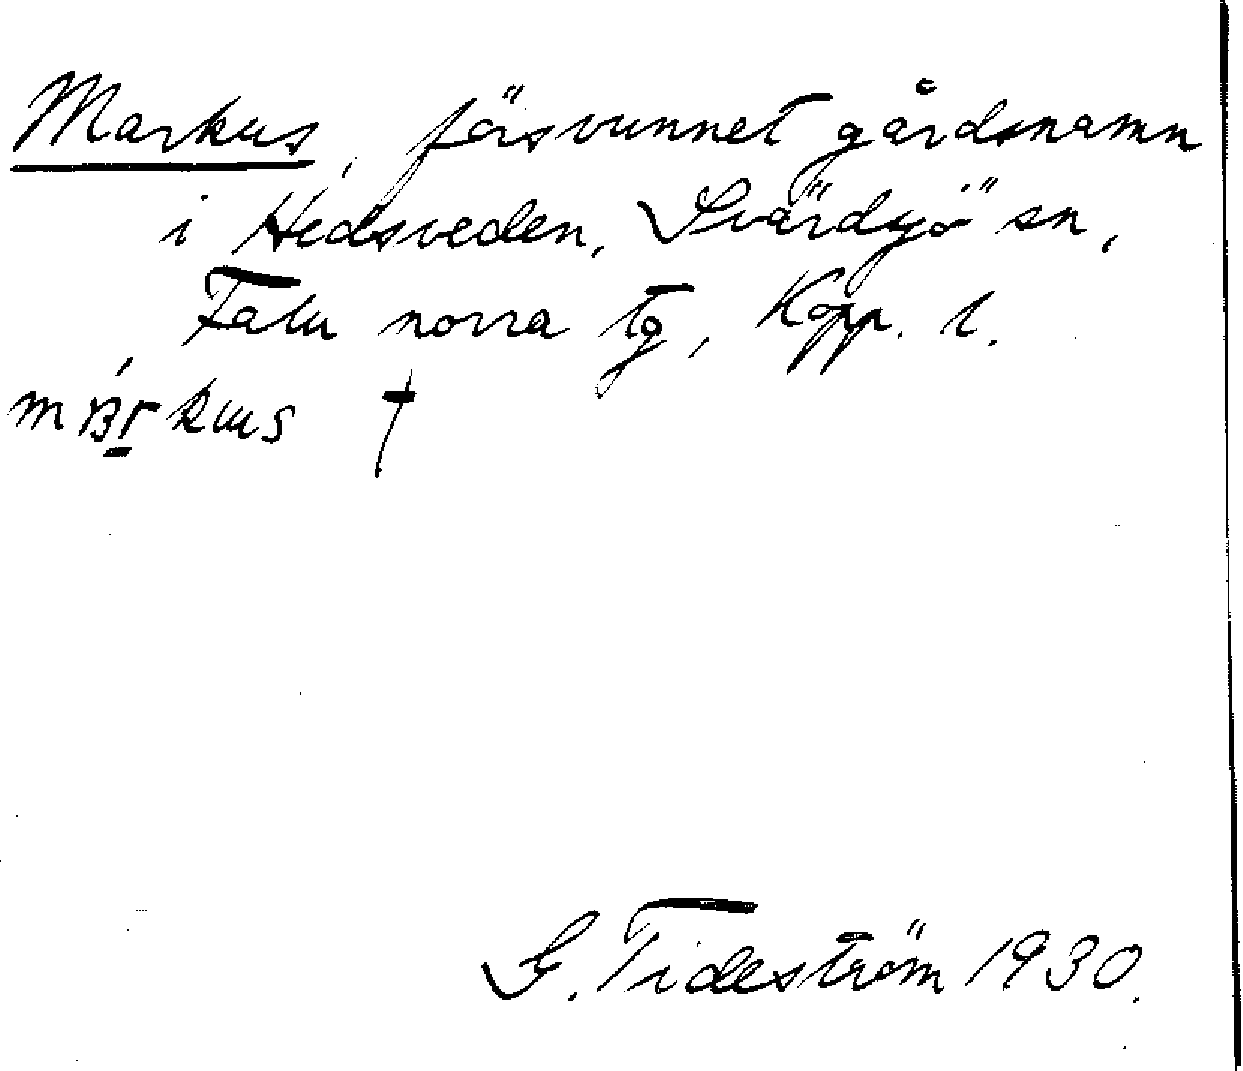 Markus, försvunnet gårdsnamn
i Hedsveden, Svärdsjö sn,
Falu norra tg, Kopp. l.
†
G. Tideström 1930.